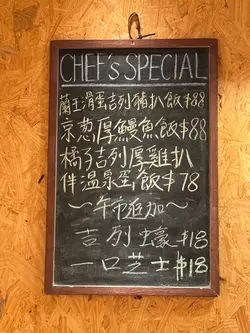 CHEF'S SPECIAL
蘭王滑蛋吉列豬扒飯$88
京葱厚鰻魚飯$88
橘子吉列厚雞扒
伴溫泉蛋飯$78
～午市追加～
吉列蠔$18
一口芝士$18